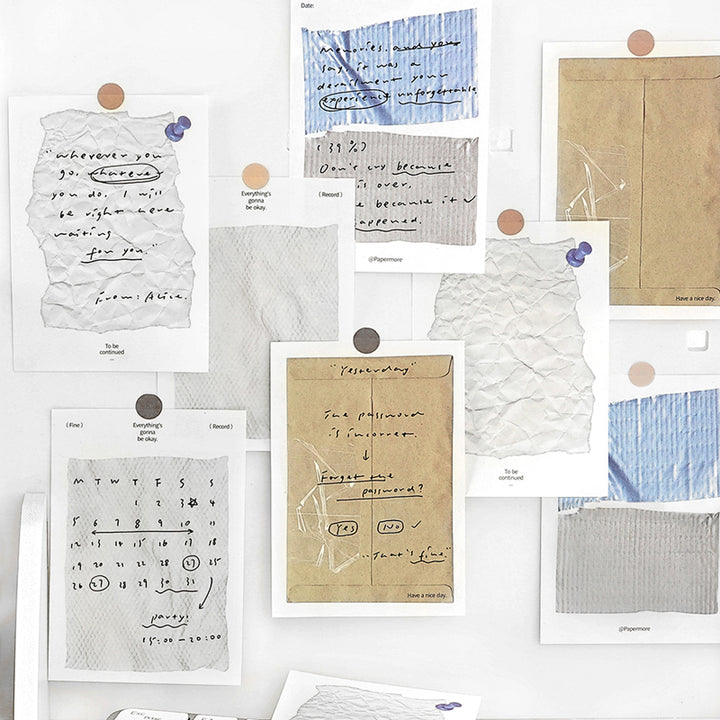 Date:
Memories. and you
say, it was a
derailment your
experience unforgettable
(39%)
Don't cry because
is over.
because it
happened.
@Papermore
"wherever you
go, whatever
you do. I will
be right here
waiting
for you."
From: Alice.
To be
continued
Everything's
gonna
be okay.
(Record)
Have a nice day.
To be
continued
"Yesterday"
The password
is incorret.
↓
Forget the
password?
Yes No ✓
"That's fine."
Have a nice day.
(Fine)
Everything's
gonna
be okay.
(Record)
M T W T F S S
1 2 3 4
5 6 7 8 9 10 11
12 13 14 15 16 17 18
19 20 21 22 25
26 27 28 29 30 31
party!
15:00-20:00
@Papermore